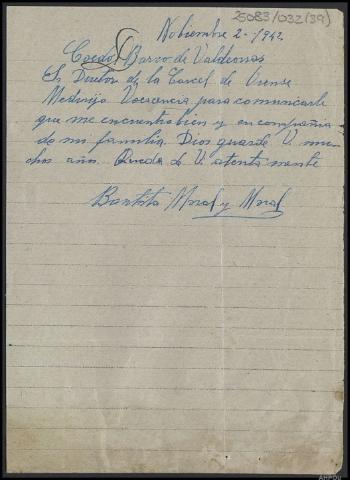 25083/032(39)
Nobiembre 2-1942
Coedo Barvo de Valdeorras
Sr Diretor de la Carcel de Orense
Medirijo Vocerencia para comunicarle
que me encuentro bien y en compañia
de mi familia. Dios guarde V. mu-
chos años. Queda de V. atentamente
Bautista Moral y Moral
AHPOu